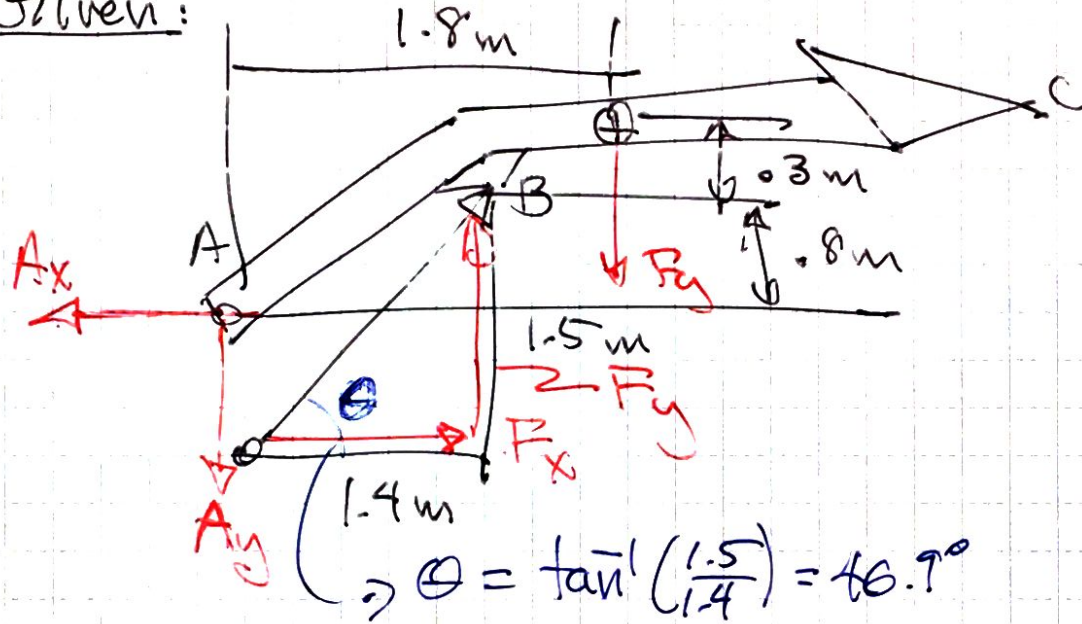 Given:
1.8 m
C
.3 m
B
A
.8 m
Ax
Fg
1.5 m
θ
Fy
Fx
1.4 m
Ay
θ = tan⁻¹ (1.5/1.4) = 46.9°